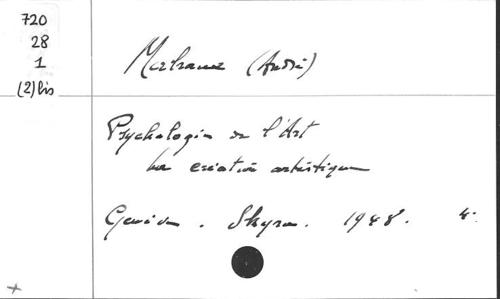 720
28
1
(2)bis
Malraux (André)
Psychologie de l'Art
La création artistique
Genève. Skira. 1948. 4°
+